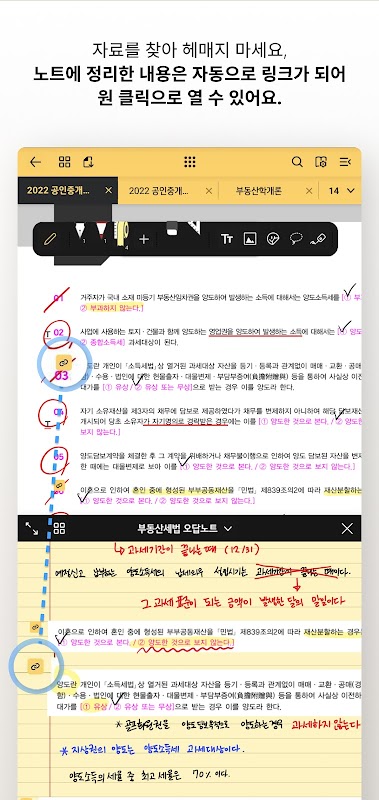 자료를 찾아 헤매지 마세요,
노트에 정리한 내용은 자동으로 링크가 되어
원 클릭으로 열 수 있어요.
2022 공인중개... ×
2022 공인중개... ×
부동산학개론 ×
14
1 1 4
Tт
01 거주자가 국내 소재 미등기 부동산임차권을 양도하여 발생하는 소득에 대해서는 양도소득세를 [① 부
② 부과하지 않는다.]
02 사업에 사용하는 토지·건물과 함께 양도하는 영업권을 양도하여 발생하는 소득에 대해서는 [①
② 종합소득세] 과세대상이 된다.
03 양도란 개인이 「소득세법」상 열거된 과세대상 자산을 등기·등록과 관계없이 매매·교환·공매
)·수용·법인에 대한 현물출자·대물변제·부담부증여(負擔附贈與) 등을 통하여 사실상 이전
대가를 [① 유상 / ② 유상 또는 무상]으로 받는 경우 이를 양도라 한다.
04 자기 소유재산을 제3자의 채무에 담보로 제공하였다가 채무를 변제하지 아니하여 해당 담보자산
개시되어 당초 소유자가 자기명의로 경락받은 경우에는 이를 [① 양도한 것으로 본다. / ② 양도한
보지 않는다.]
05 양도담보계약을 체결한 후 그 계약을 위배하거나 채무불이행으로 인하여 양도 담보된 자산을 변제
한 때에는 대물변제로 보아 이를 [① 양도한 것으로 본다. / ② 양도한 것으로 보지 않는다.]
이혼으로 인하여 혼인 중에 형성된 부부공동재산을 「민법」 제839조의2에 따라 재산분할하는
도한 것으로 본다. / ② 양도한 것으로 보지 않는다.]
부동산세법 오답노트
↳ 과세기간이 끝나는 때 (12/31)
예정신고 납부하는 양도소득세의 납세의무 성립시기는 과세기간이 끝나는 때이다.
그 과세표준이 되는 금액이 발생한 달의 말일이다
이혼으로 인하여 혼인 중에 형성된 부부공동재산을 「민법」 제839조의2에 따라 재산분할하는 경우
한 것으로 본다. / ② 양도한 것으로 보지 않는다.]
양도란 개인이 「소득세법」상 열거된 과세대상 자산을 등기·등록과 관계없이 매매·교환·공매(경
함)·수용·법인에 대한 현물출자·대물변제·부담부증여(負擔附贈與) 등을 통하여 사실상 이전하
대가를 [① 유상 / ② 유상 또는 무상]으로 받는 경우 이를 양도라 한다.
* 골프회원권을 양도담보목적으로 양도하는 경우 과세하지 않는다
* 지상권의 양도는 양도소득세 과세대상이다.
양도소득의 세율 중 최고 세율은 70%이다.